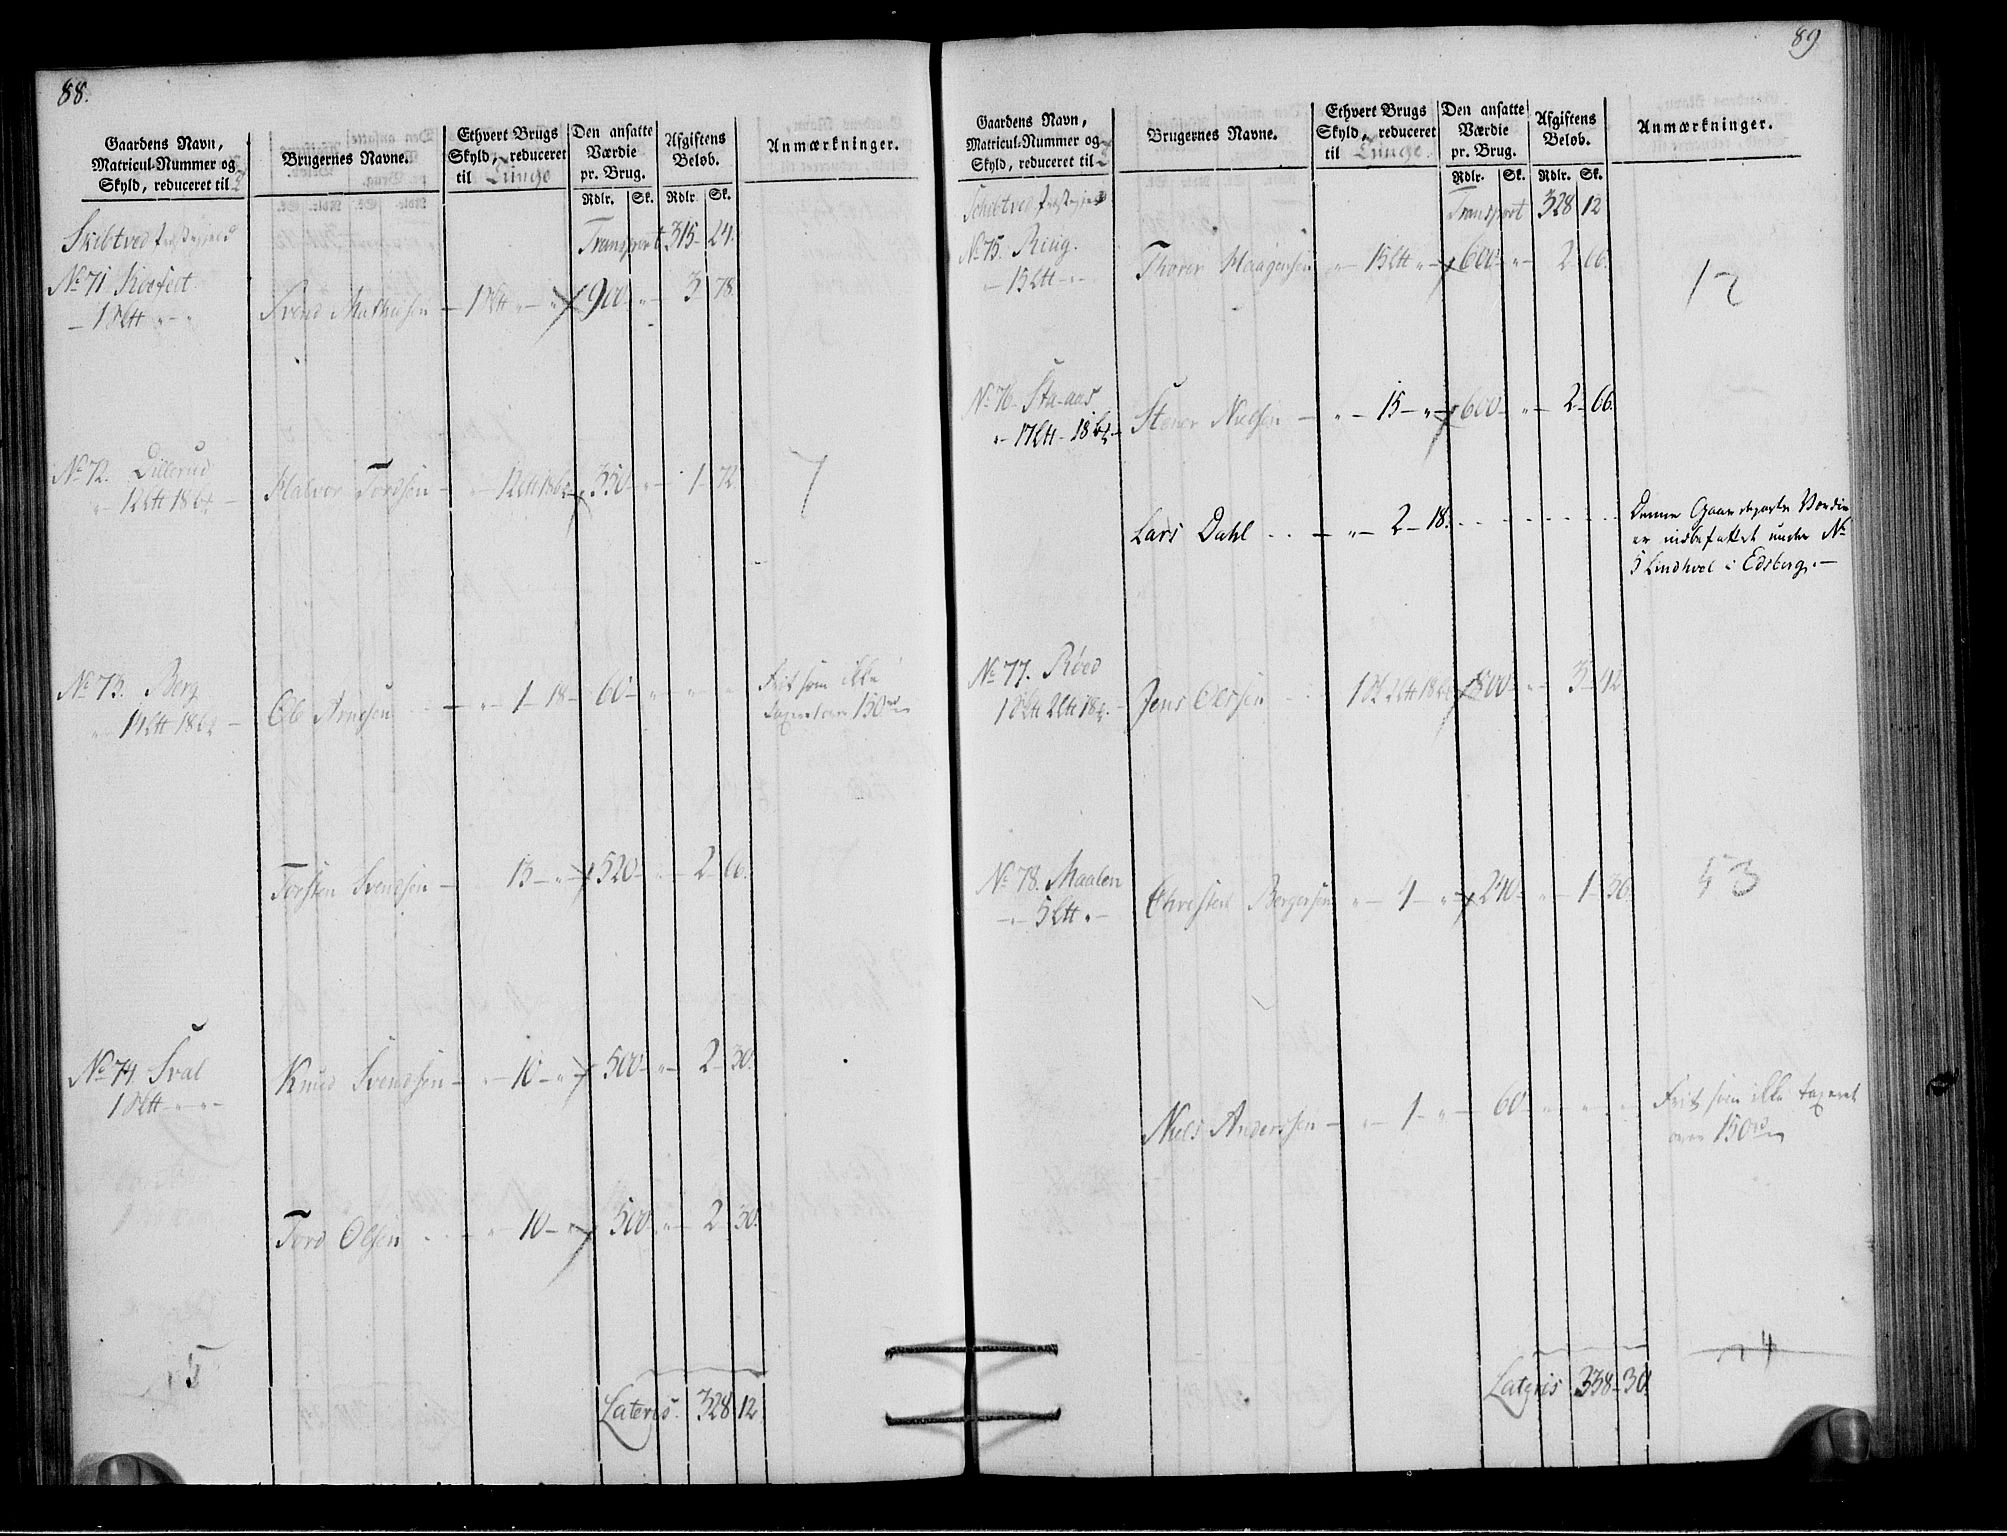 88.
Gaardens Navn,
Matricul-Nummer og
Skyld, reduceret til
Brugernes Navne.
Ethvert Brugs
Skyld, reduceret
til Tunge
Den ansatte
Værdie
pr. Brug.
Rdlr. Sk.
Afgiftens
Beløb.
Rdlr. Sk.
Anmærkninger.
Skibtved
Transport 315 - 24.
No 71
Svend - 900 - " - 3 - 78.
No 72. Lillerud
Halvor Tordsen - 350 - " - 1 - 72 7
No 73. Berg
Ole Arnesen - " - 1 - 18 - 60 - " - " - " Frit som ikke
Taxeret over 150 rd
Torsten Svendsen - 15 - " - 520 - " - 2 - 66.
No 74. Sval
Knud Svendsen - " - 10 - " - 500 - " - 2 - 30.
Tord Olsen - " - 10 - " 500 " - 2 - 30.
5
Lateris. 328 12.
89
Gaardens Navn,
Matricul-Nummer og
Skyld, reduceret til
Brugernes Navne.
Ethvert Brugs
Skyld, reduceret
til Tunge
Den ansatte
Værdie
pr. Brug.
Rdlr. Sk.
Afgiftens
Beløb.
Rdlr. Sk.
Anmærkninger.
Schibtved
Transport 328 12
No 75.
Thorer Haagensen 600 - " - 2 66. 12
No 76.
Stener Nielsen - " - 15 - " - 600 - " - 2 - 66.
Lars Dahl . . - " - 2 - 18. Denne Gaardeparts Værdie
er indbefattet under No
5 Lindhoel i Edsberg. -
No 77. Röed
Jens Olssen 800 - " - 3 - 42
No 78. Maalen
Christen Bergersen " - 4 - " - 240 - " - 1 - 36. 53
Niels Anderssen - " - 1 - " - 60 - " - " - Frit som ikke taxeret
over 150 rd
Lateris 338 - 30.